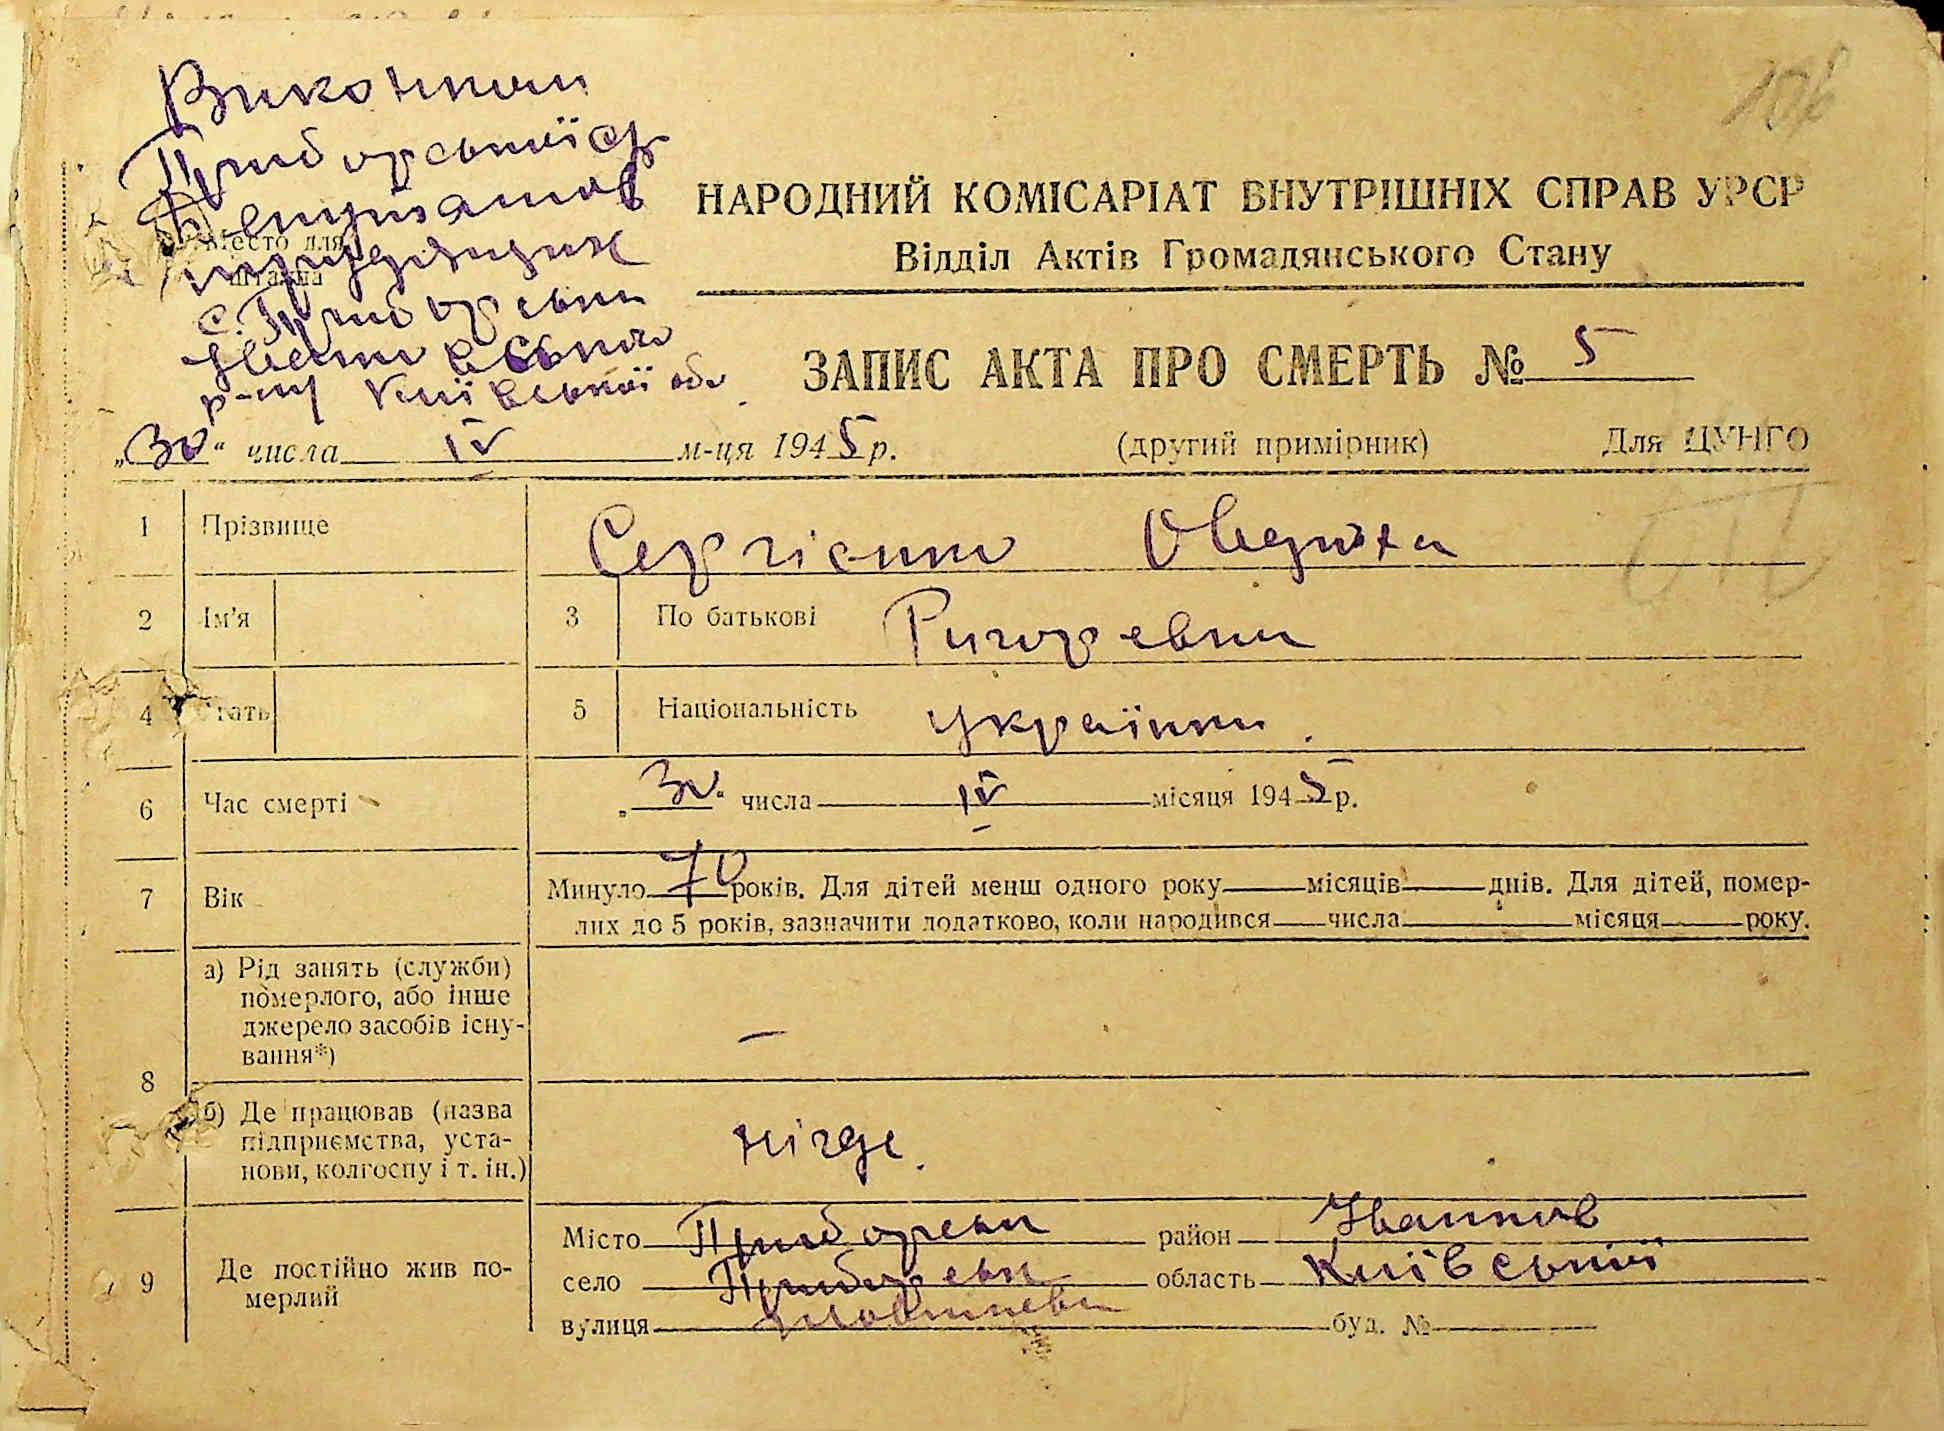 106
Виконком
Приборської с/р
Депутатів
трудящих
с. Приборськ
Іванківського
р-ну Київської обл.
Место для
штампа
НАРОДНИЙ КОМІСАРІАТ ВНУТРІШНІХ СПРАВ УРСР
Відділ Актів Громадянського Стану
ЗАПИС АКТА ПРО СМЕРТЬ № 5
„30“ числа IV м-ця 1945 р. (другий примірник) Для ЦУНГО
1 Прізвище Сергієнко
2 Ім'я 3 По батькові Ригоревна
4 Стать 5 Національність українка.
6 Час смерті „30“ числа IV місяця 1945 р.
7 Вік Минуло 70 років. Для дітей менш одного року місяців днів. Для дітей, помер-
лих до 5 років, зазначити додатково, коли народився числа місяця року.
8 а) Рід занять (служби)
померлого, або інше
джерело засобів існу-
вання*) –
б) Де працював (назва
підприємства, уста-
нови, колгоспу і т. ін.) нігде.
9 Де постійно жив по-
мерлий
Місто Приборськ район Іванков
село Приборськ область Київської
вулиця буд. №